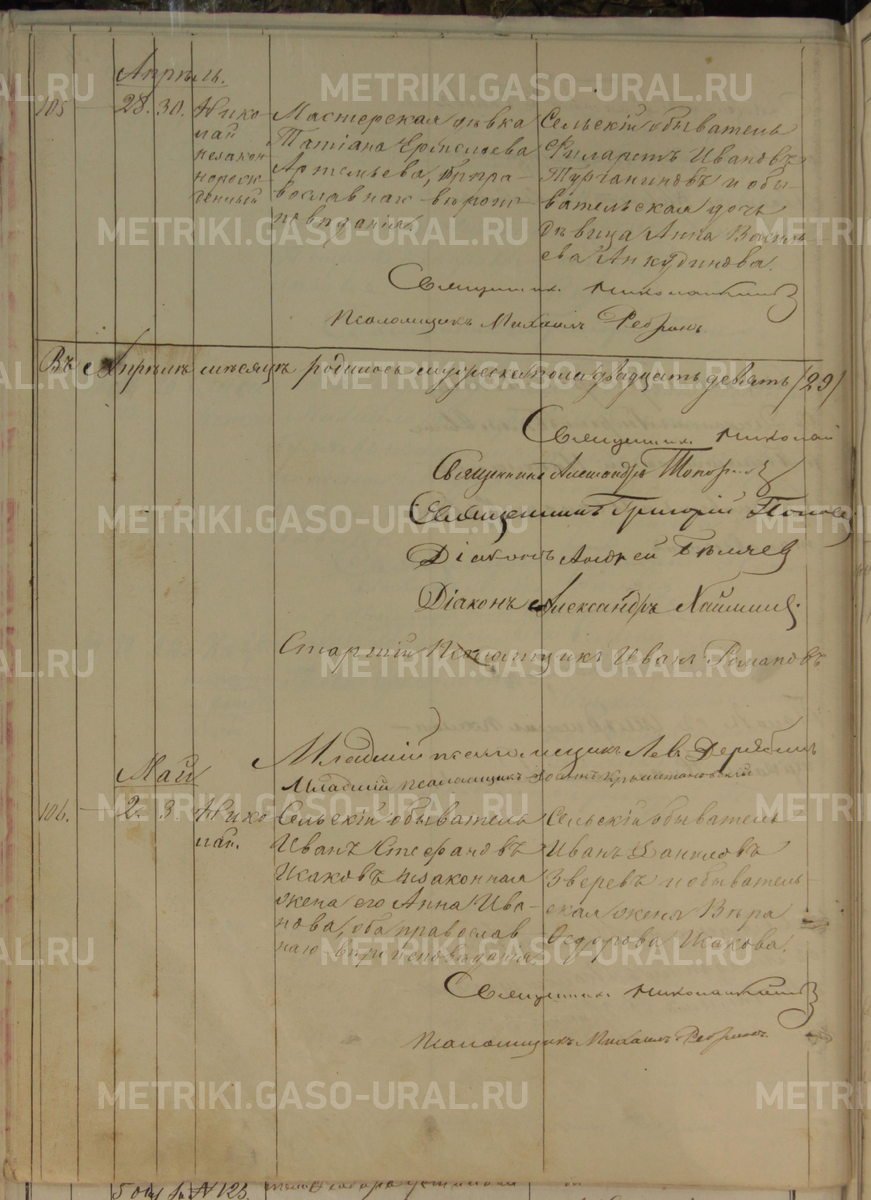 Апрѣль.
105 28. 30. Нико-
лай
незакон-
норож-
денный
Мастерская дѣвка
Татіана
Артемьева, пра-
вославнаго вѣроис-
повѣданія.
Сельскій обыватель
Филаретъ Ивановъ
и обы-
вательская дочь
дѣвица Анна Василь-
ева Анкудинова.
Священникъ
Псаломщикъ Михаилъ Ребринъ.
Въ Апрѣлѣ мѣсяцѣ родилось мужеска пола двадцать девять (29)
Священникъ Николай
Священникъ Александръ
Священникъ Григорій Поповъ
Діаконъ Андрей Бѣляевъ
Діаконъ Александръ
Старшій Псаломщикъ Иванъ Романовъ
Младшій псаломщикъ Левъ Дерябинъ
Младшій псаломщикъ
Май
106. 2. 3. Нико-
лай.
Сельскій обыватель
Иванъ Стефановъ
Исаковъ и законная
жена его Анна Ива-
нова, оба православ-
наго вѣроисповѣданія.
Сельскій обыватель
Иванъ Даниловъ
Звѣревъ и обыватель-
ская жена Вѣра
Ѳедорова Исакова.
Священникъ
Псаломщикъ Михаилъ Ребринъ.
№ 123.
METRIKI.GASO-URAL.RU